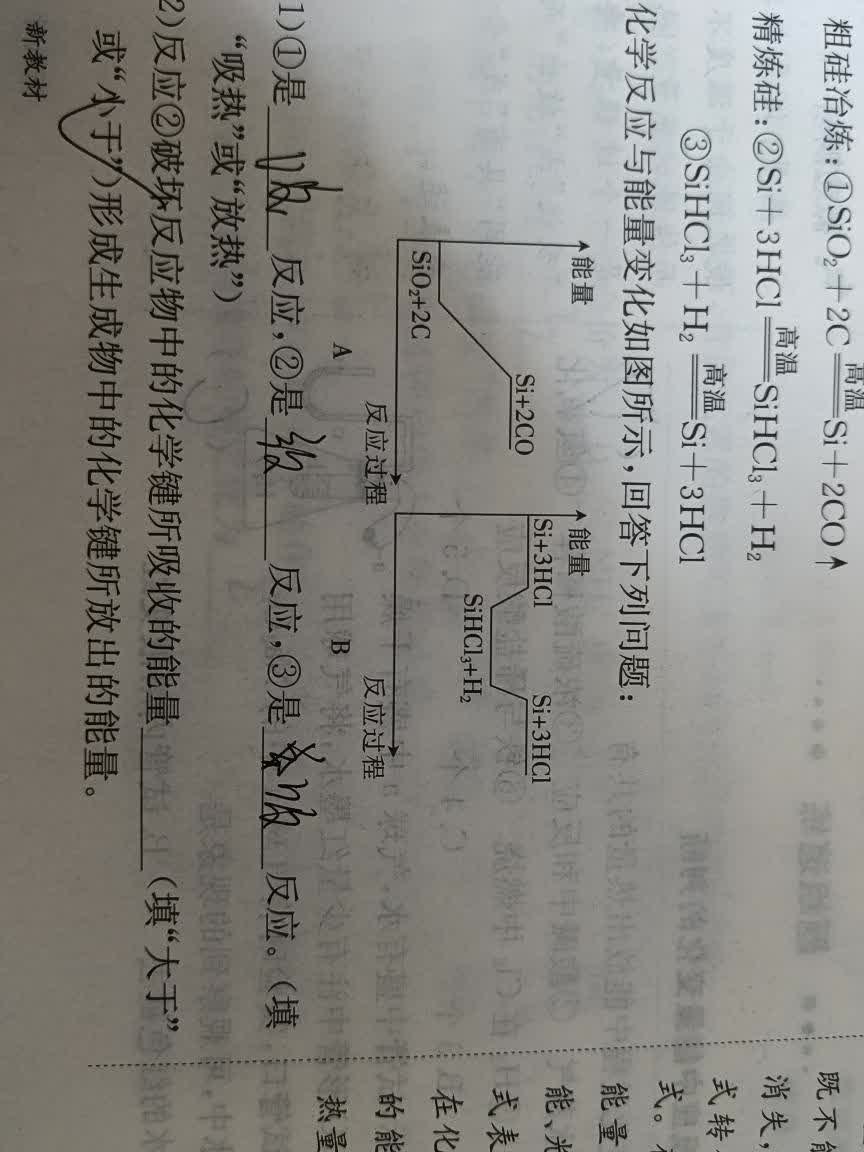 粗硅冶炼:①SiO₂+2C=高温=Si+2CO↑
精炼硅:②Si+3HCl=高温=SiHCl₃+H₂
③SiHCl₃+H₂=高温=Si+3HCl
化学反应与能量变化如图所示,回答下列问题:
能量
Si+2CO
SiO₂+2C
反应过程
A
能量
Si+3HCl
Si+3HCl
SiHCl₃+H₂
反应过程
B
1)①是 吸 反应,②是 放 反应,③是 吸 反应。(填
“吸热”或“放热”)
2)反应②破坏反应物中的化学键所吸收的能量 (填“大于”
或“小于”)形成生成物中的化学键所放出的能量。
新教材
既不能
消失,
式转
式。
能量
能、光
式表
在化
的能
热量